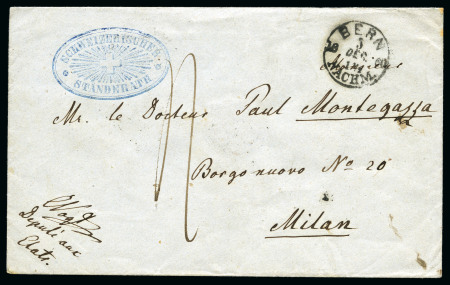 SCHWEIZERISCHER
STÄNDERATH
BERN
5
DEC.
18 60
NACHM.
Mr. le Docteur Paul Montegazza
Borgo nuovo No 20
Milan
Vogt
Député aux
Etats.